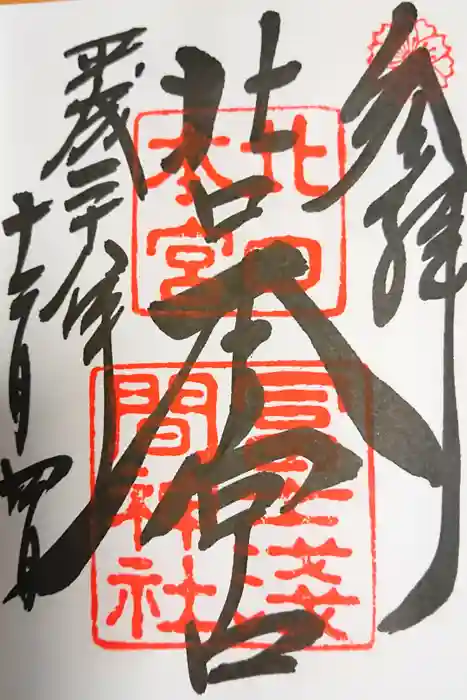 奉拝
北口本宮
平成三十年
十二月四日
北口
本宮
冨士淺
間神社